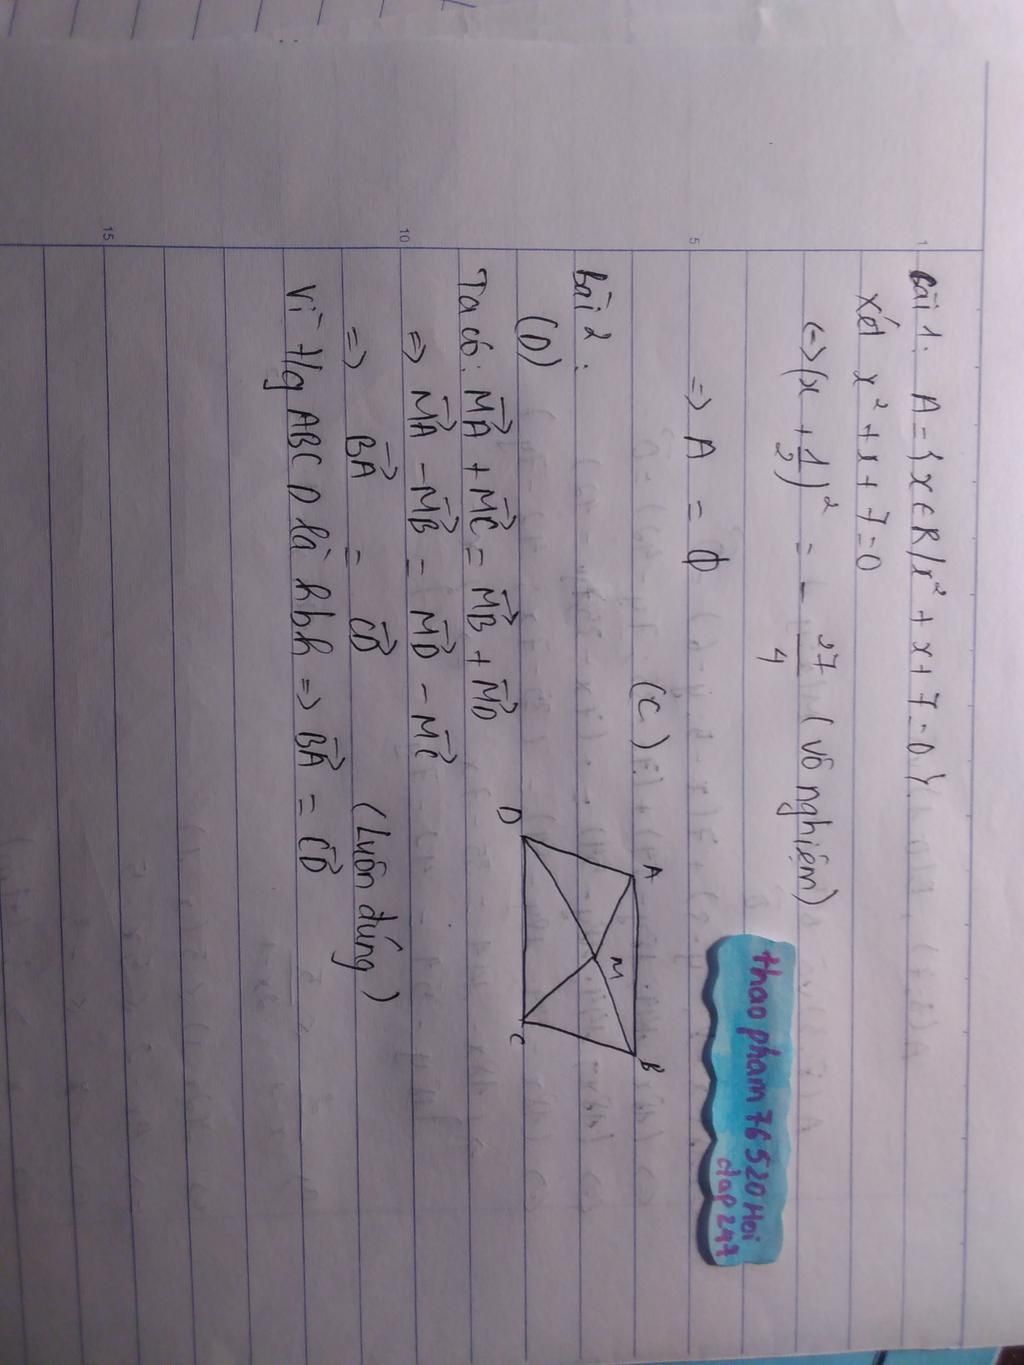 Bài 1: A = {x ∈ R/x² + x + 7 = 0}
Xét x² + x + 7 = 0
(=> (x + 1/2)² = - 27/4 (vô nghiệm)
=> A = ∅
(C)
Bài 2:
(D)
A
B
M
D
C
Ta có: \vec{MA} + \vec{MC} = \vec{MB} + \vec{MD}
=> \vec{MA} - \vec{MB} = \vec{MD} - \vec{MC}
=> \vec{BA} = \vec{CD} (Luôn đúng)
Vì t/g ABCD là hbh => \vec{BA} = \vec{CD}
thao pham 76 520 Hoi
dap 247
1
5
10
15